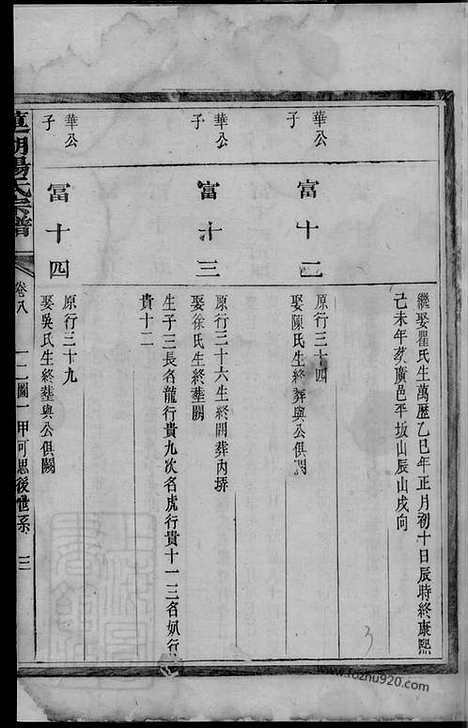 繼娶瞿氏生萬歷乙巳年正月初十日辰時終康熙
己未年葬廣邑平坂山辰山戌向
華公
子
富十二
原行三十四
娶陳氏生終葬與公俱闕
華公
子
富十三
原行三十六生終闕葬內㘭
娶徐氏生終葬闕
生子三長名龍行貴九次名虎行貴十一三名㚢行
貴十二
華公
子
富十四
原行三十九
娶吳氏生終葬與公俱闕
湖楊氏宗譜
卷八
一二圖一甲可思後世系
三
3
www.fozhu920.com